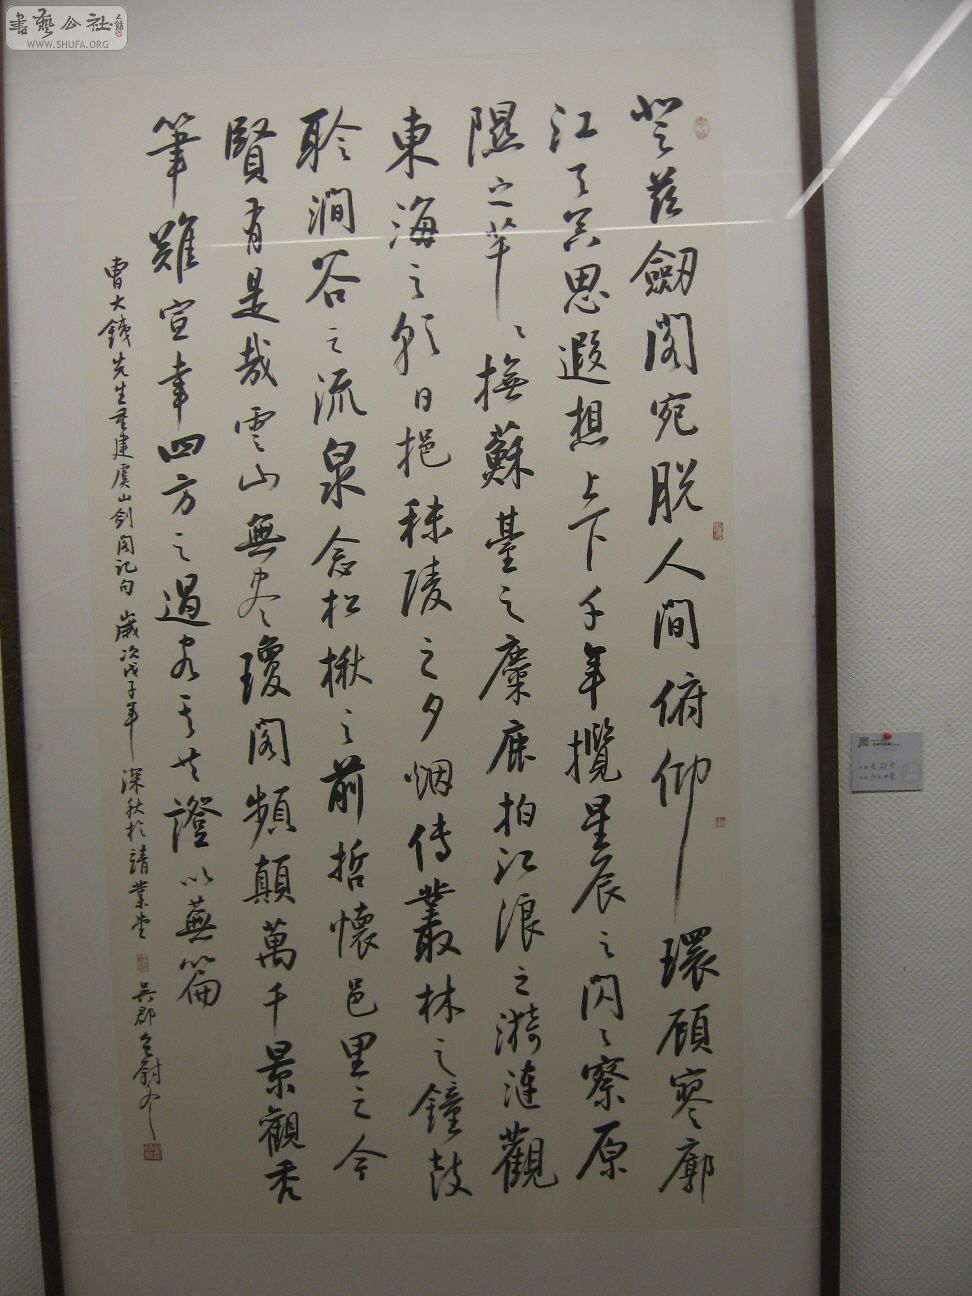 登茲劒閣宛脱人間俯仰環顧寥廓
江天冥思遐想上下千年攬星辰之閃々察原
隰之芊々撫蘇臺之麋鹿拍江浪之漪漣觀
東海之朝日挹秣陵之夕烟傳叢林之鐘鼓
聆澗谷之流泉念松楸之前哲懷邑里之今
賢有是哉雲山無盡瓊閣頻顛萬千景觀禿
筆難宣幸四方之過客其共證以蕪篇
曹大鐵先生重建虞山劍閣記句 歲次戊子年深秋於靖業堂
吳郡
書藝公社
WWW.SHUFA.ORG